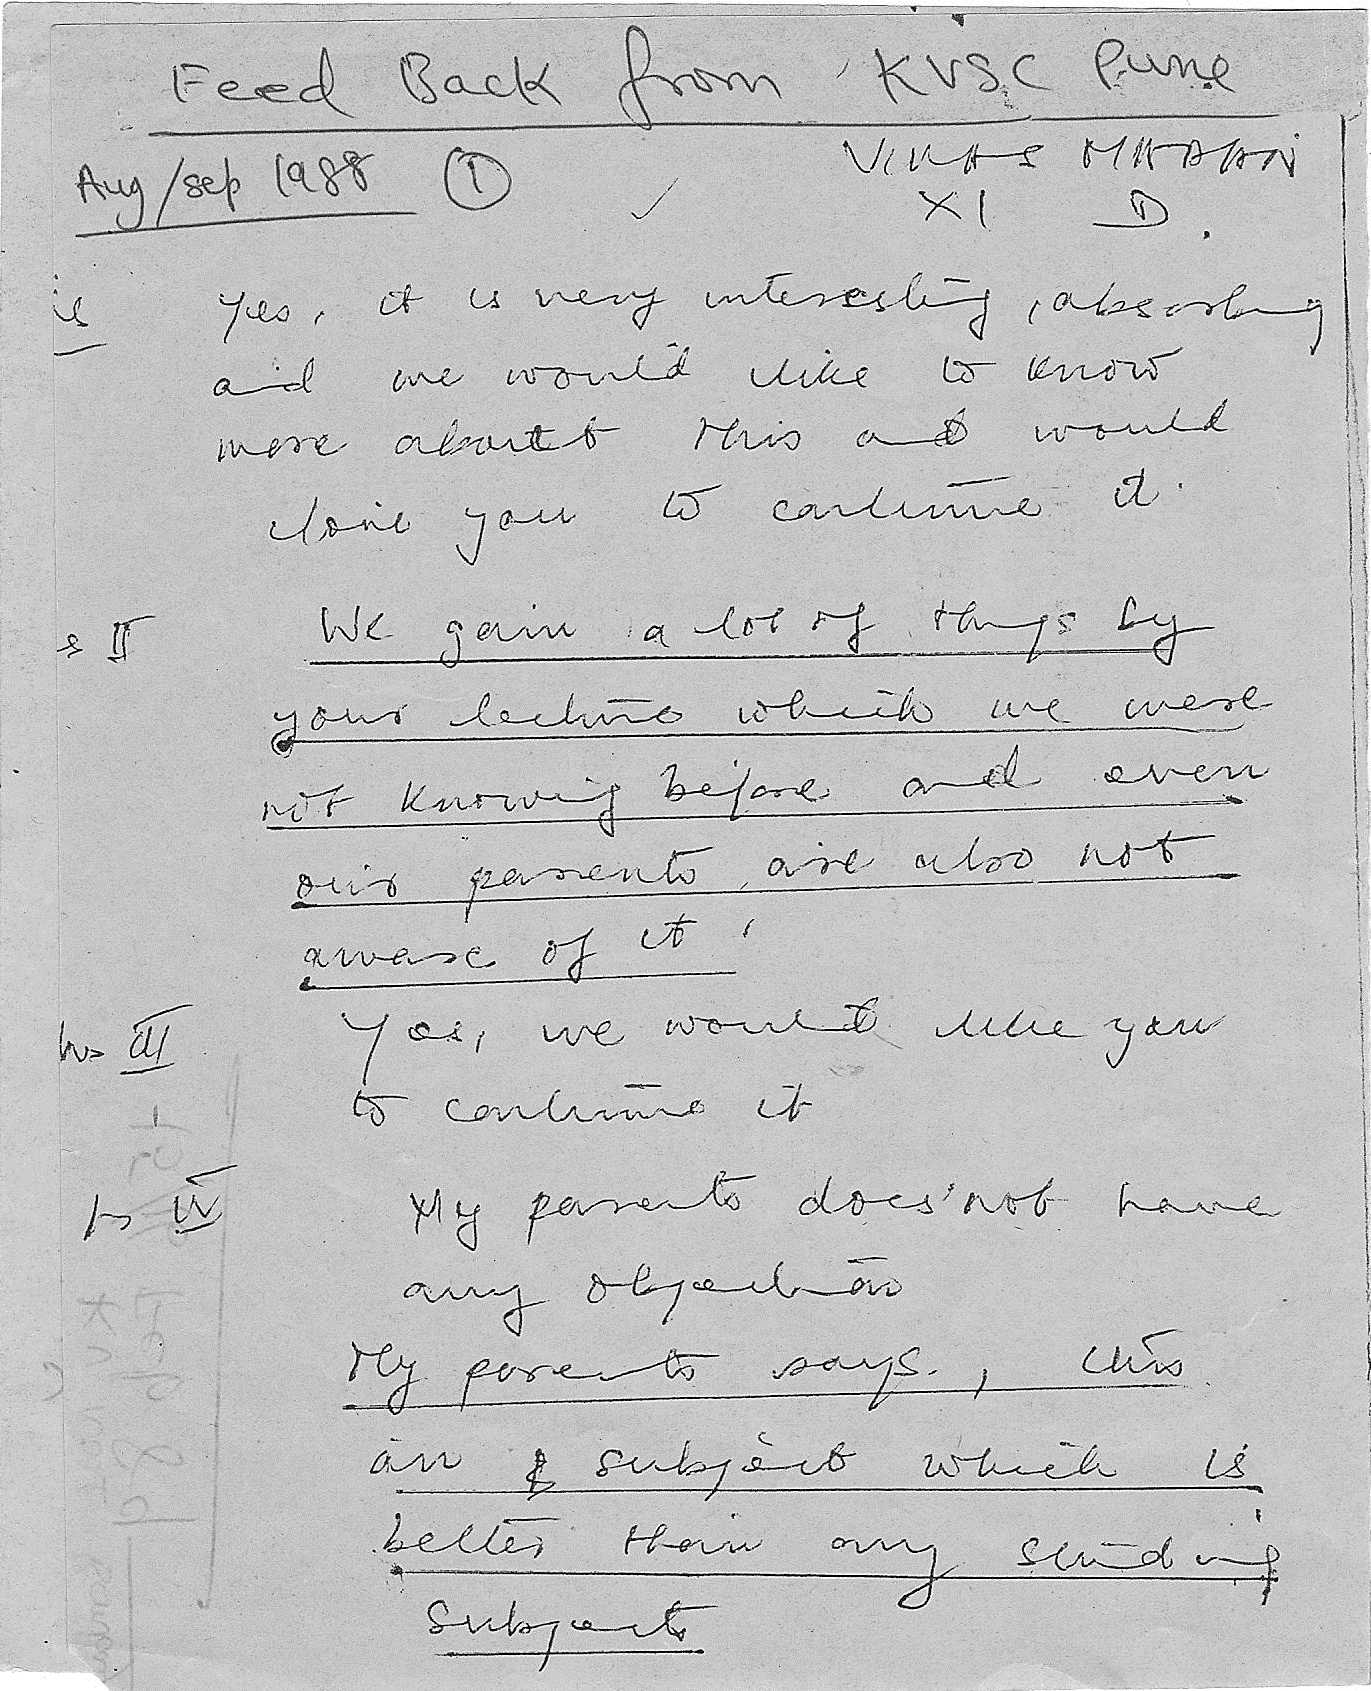 Feed Back from KVSC Pune
Aug/Sep 1988 ① VIKAS MADAN
XI D.
Yes, it is very interesting, absorbing
and we would like to know
more about this and would
love you to continue it.
II We gain a lot of things by
your lecture which we were
not knowing before and even
our parents are also not
aware of it.
III Yes, we would like you
to continue it
IV My parents does not have
any objection
My parents says, this
an subject which is
better than any
subjects